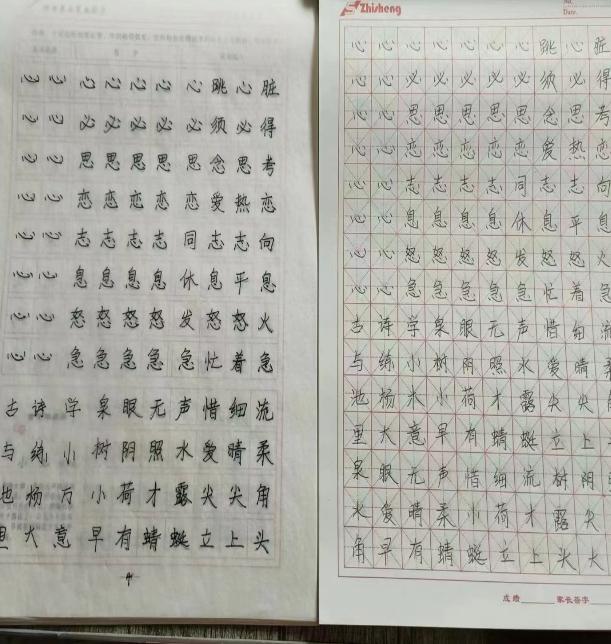 心 心 心 心 心 心 心 跳 心 脏
心 心 必 必 必 必 必 须 必 得
心 心 思 思 思 思 思 念 思 考
心 心 恋 恋 恋 恋 恋 爱 热 恋
心 心 志 志 志 志 同 志 志 向
心 心 息 息 息 息 休 息 平 息
心 心 怒 怒 怒 怒 发 怒 怒 火
心 心 急 急 急 急 急 忙 着 急
古 诗 学 泉 眼 无 声 惜 细 流
与 练 小 树 阴 照 水 爱 晴 柔
池 杨 方 小 荷 才 露 尖 尖 角
里 大 意 早 有 蜻 蜓 立 上 头
Zhisheng
No.
Date.
心 心 心 心 心 心 心 跳 心 脏
心 心 必 必 必 必 必 须 必 得
心 心 思 思 思 思 思 念 思 考
心 心 恋 恋 恋 恋 恋 爱 热 恋
心 心 志 志 志 志 同 志 志 向
心 心 息 息 息 息 休 息 平 息
心 心 怒 怒 怒 怒 发 怒 怒 火
心 心 急 急 急 急 急 忙 着 急
古 诗 学 泉 眼 无 声 惜 细 流
与 练 小 树 阴 照 水 爱 晴 柔
池 杨 木 小 荷 才 露 尖 尖 角
里 大 意 早 有 蜻 蜓 立 上
泉 眼 无 声 惜 细 流 树 阴
水 爱 晴 柔 小 荷 才 露 尖
角 早 有 蜻 蜓 立 上 头 大
成绩 家长签字